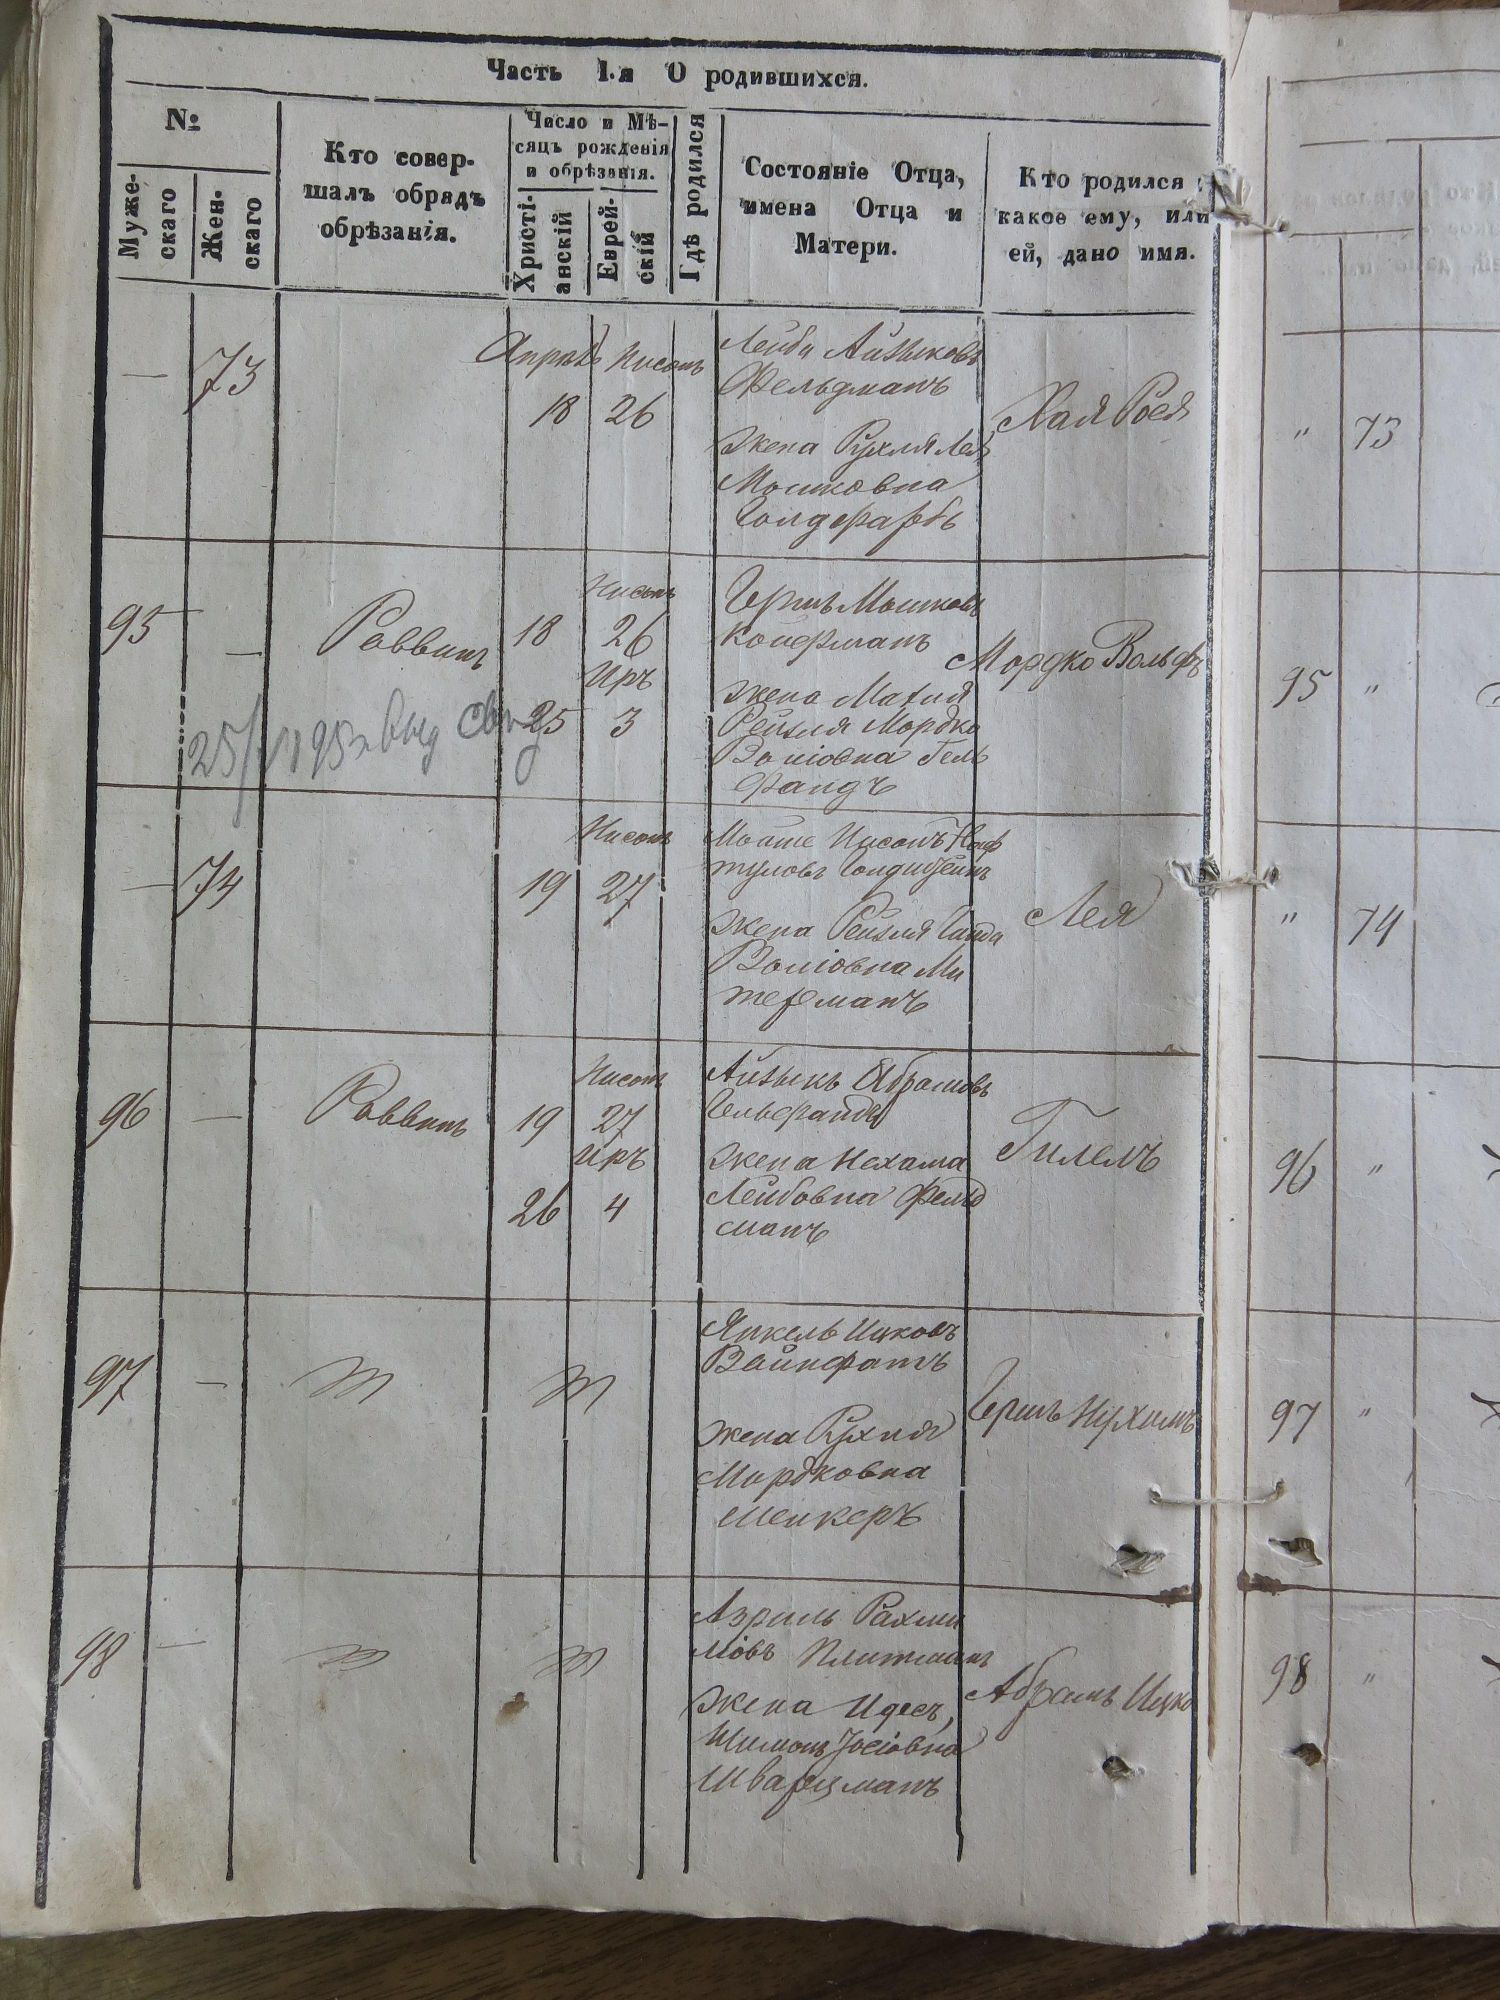 Часть I.я О родившихся.
№
Муже-
скаго
Жен-
скаго
Кто совер-
шалъ обрядъ
обрѣзанія.
Число и Мѣ-
сяцъ рожденія
и обрѣзанія.
Христі-
анскій
Еврей-
скій
Гдѣ родился
Состояніе Отца,
имена Отца и
Матери.
Кто родился и
какое ему, или
ей, дано имя.
— 73
Апрель Нисонъ
18 26
Лейба Айзыковъ
Фельдманъ
жена Рухля Лея
Мошковна
Голдфарбъ
Хая Рося
" 73
95 —
Раввинъ
Нисонъ
18 26
Иръ
25 3
Гершъ Мошковъ
Койфманъ
жена
Рейзля Мордко
Волiовна Гель
фандъ
Мордко Вольфъ
95 "
— 74
Нисонъ
19 27
Мойше Нисонъ Наф
туловъ Голдштейнъ
жена Рейзля
Волiовна Ми
терманъ
Лея
" 74
96 —
Раввинъ
Нисонъ
19 27
Иръ
26 4
Айзыкъ Абрамовъ
Гельфандъ
жена Нехама
Лейбовна Фельд
манъ
Гилелъ
96 "
97 —
Янкель Ицковъ
жена Рухля
Мордковна
Гершъ Нухимъ
97 "
98 —
Азриль Рахми
лiовъ
жена Идесъ,
Шимонъ Iосiовна
Шварцманъ
Абрамъ Ицко
98 "